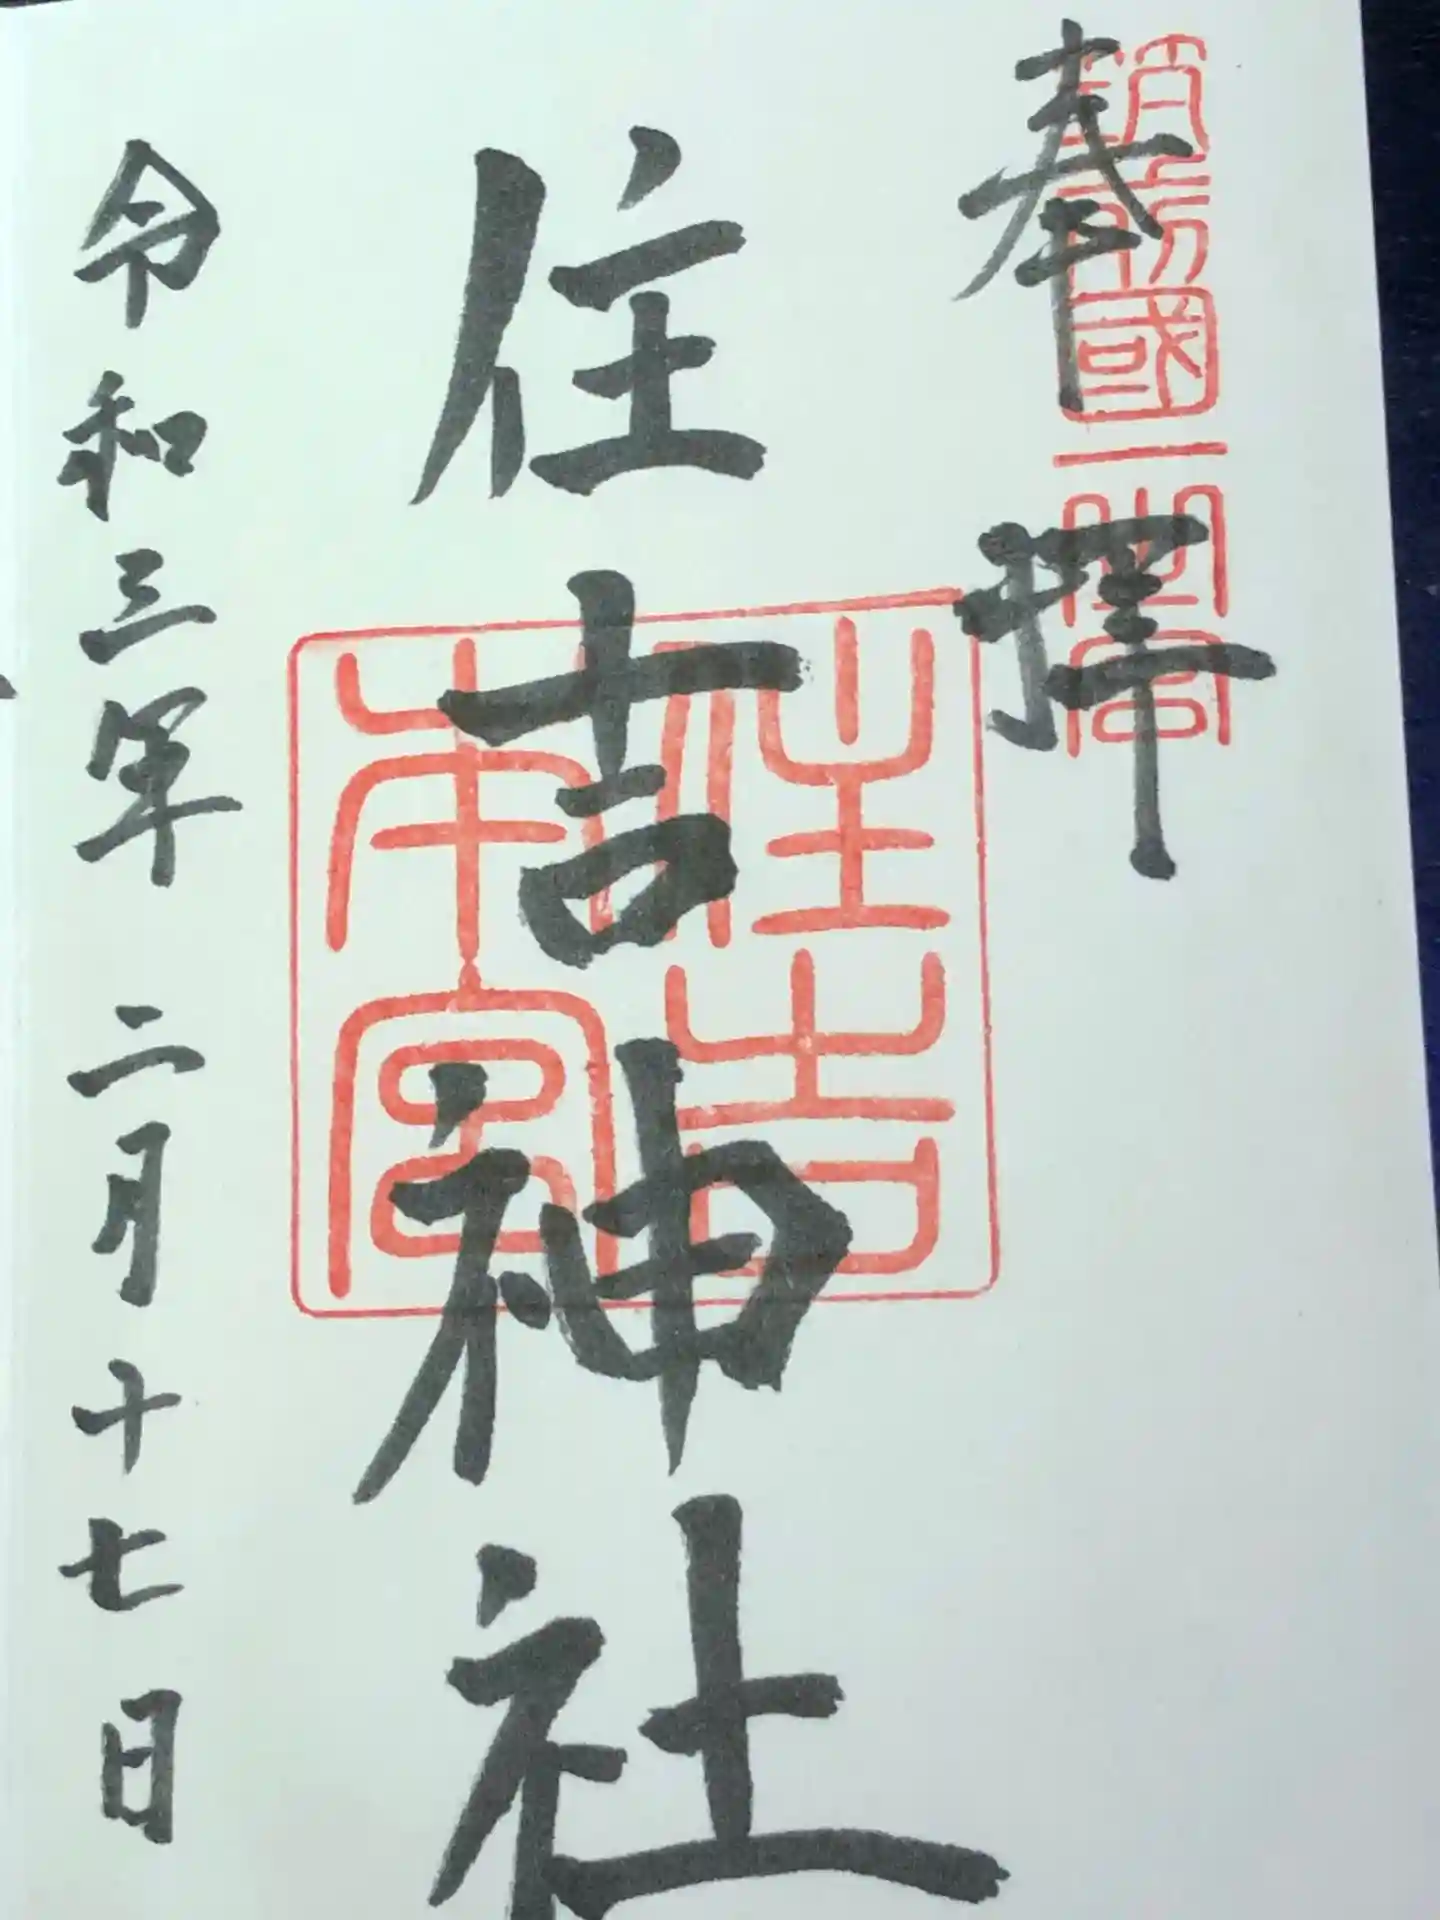 奉拝
筑前國一之宮
住吉神社
住吉本宮
令和三年二月十七日